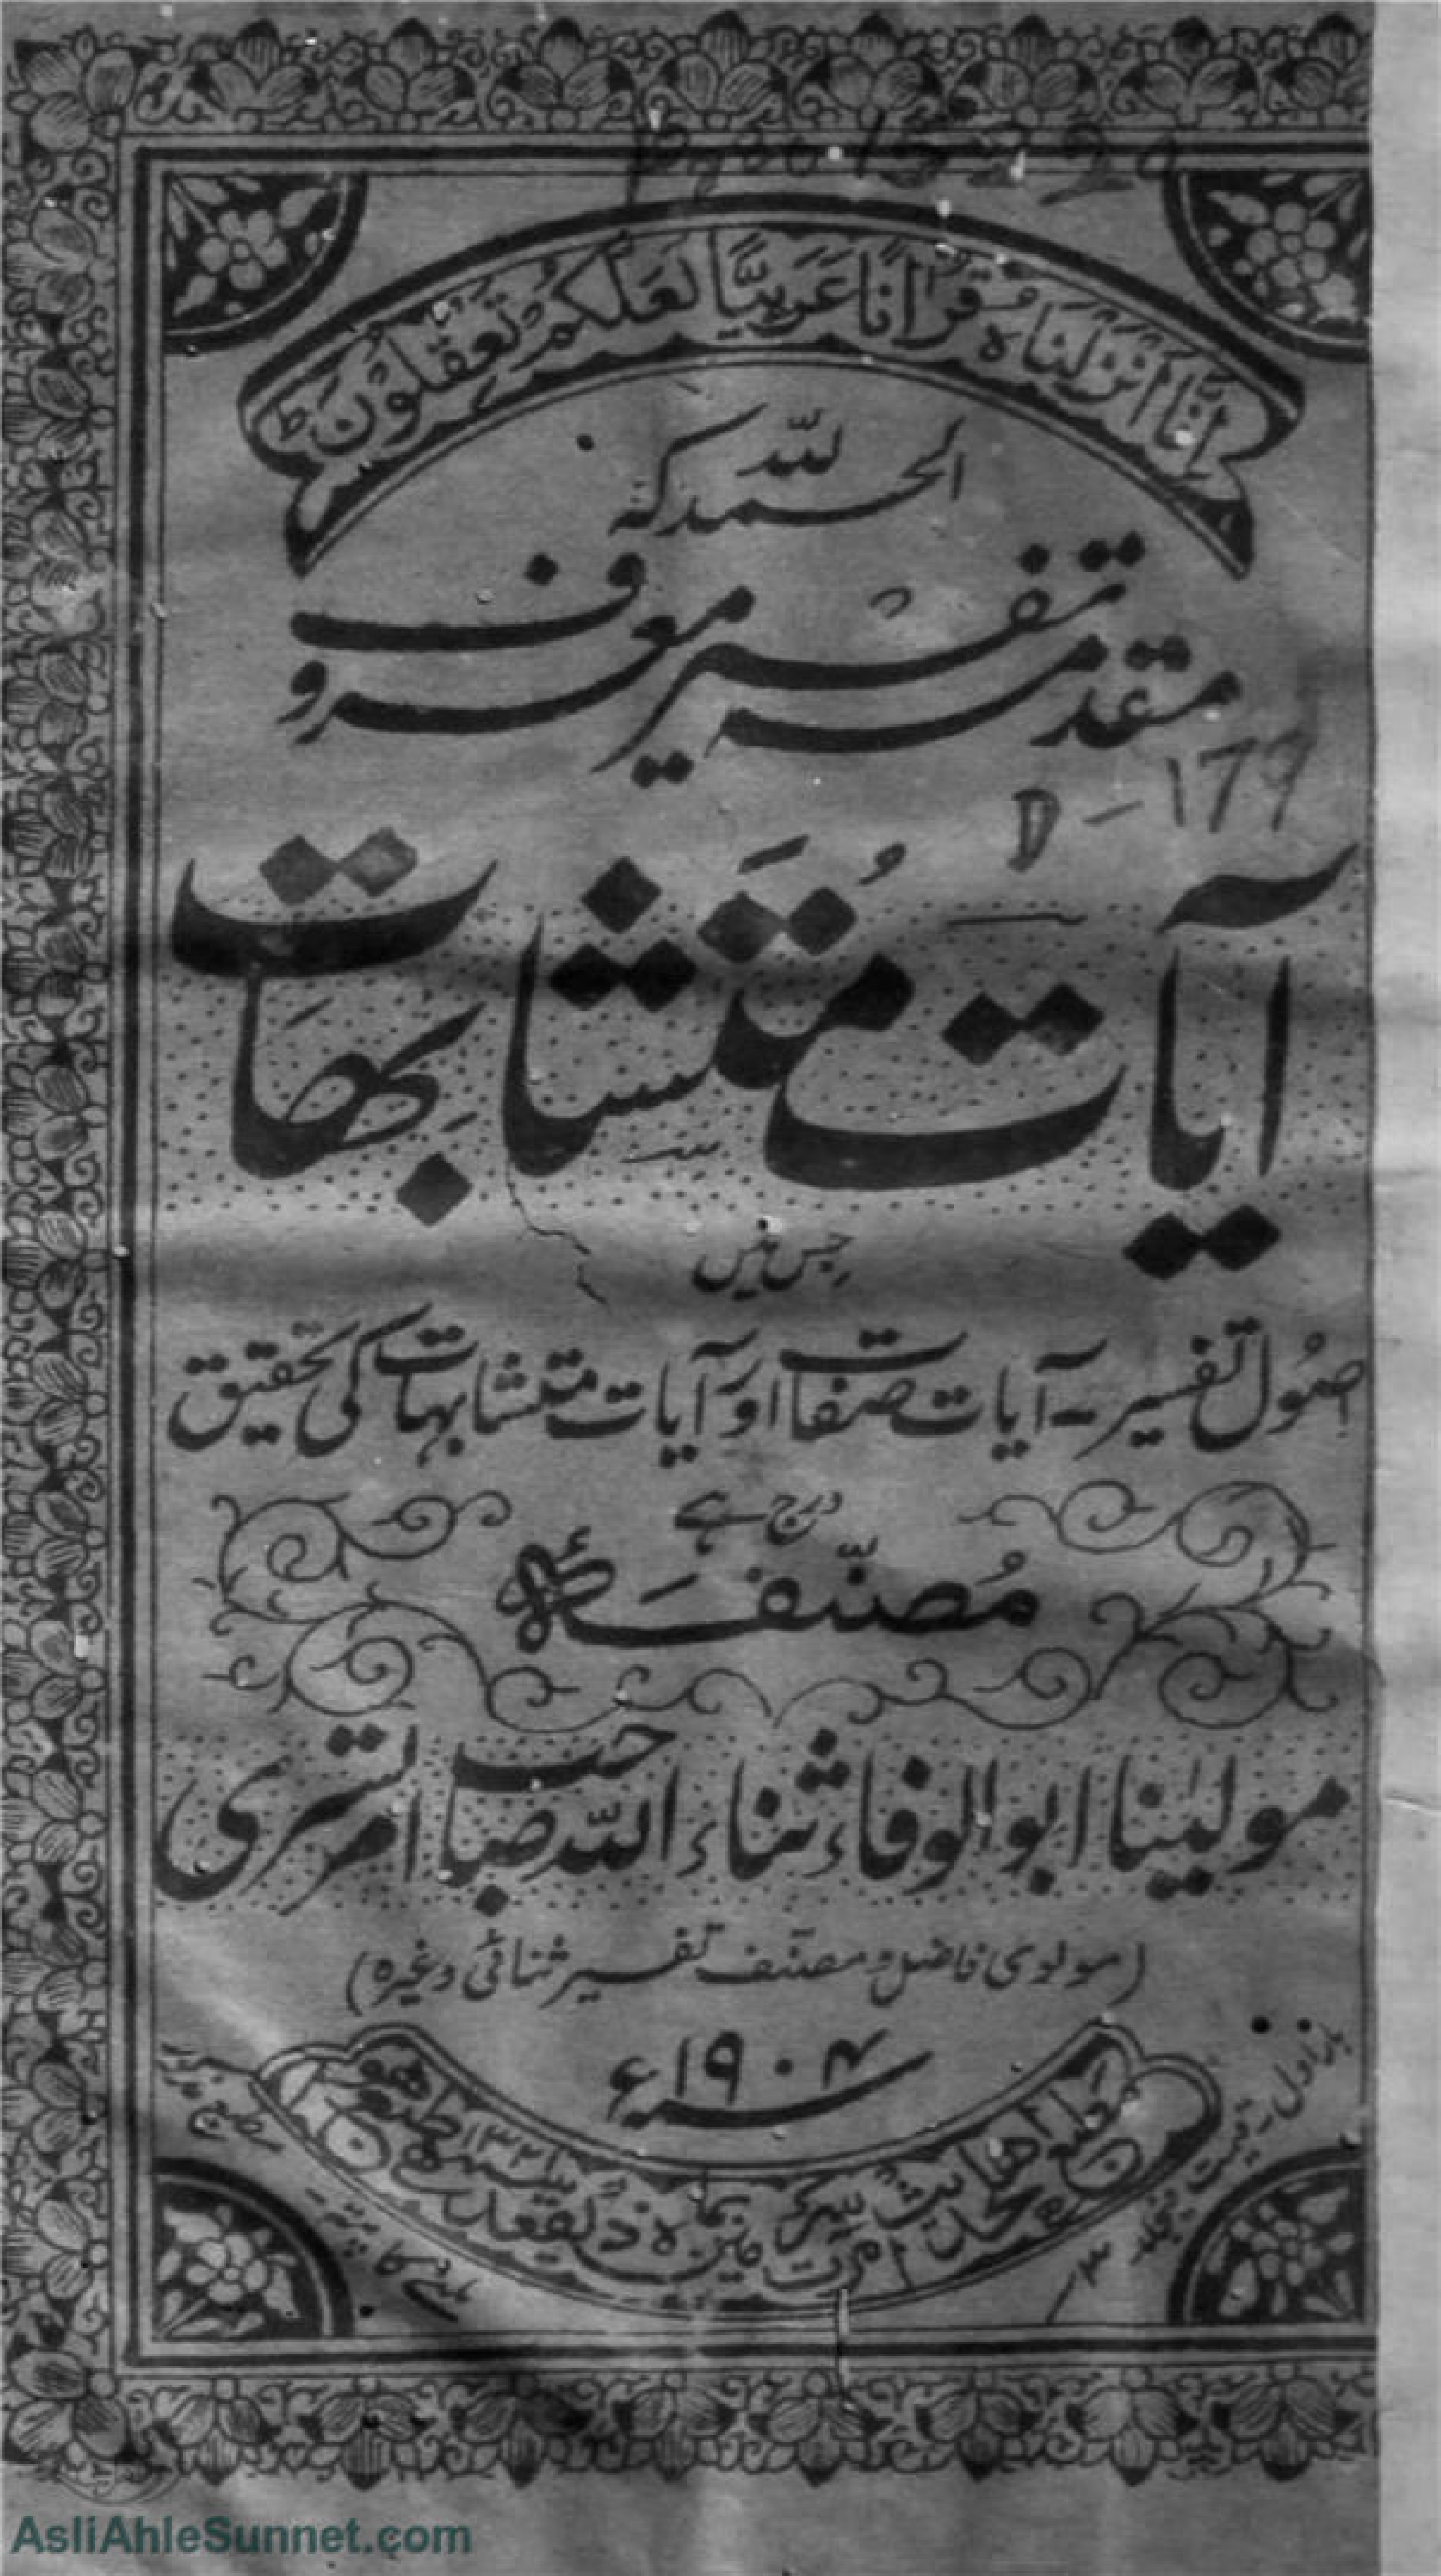 اِنَّا اَنْزَلْنَاہُ قُرْاٰنًا عَرَبِیًّا لَعَلَّکُمْ تَعْقِلُوْنَ ط
الحمد للّٰہ کہ
مقدمہ تفسیر معروف
D-179
آیات مُتَشابھات
جس میں
اصُول تفسیر ۔ آیات صفات اور آیات متشابہات کی تحقیق
درج ہے
مُصنّفَہٗ
مولیٰنا ابو الوفاء ثناء اللّٰہ صاحب امرتسری
(مولوی فاضل و مصنّف تفسیر ثنائی وغیرہ)
سنہ ۱۹۰۴ء
مطبع اھلحدیث امرت سر
بار اول
ملنے کا پتہ
AsliAhleSunnet.com